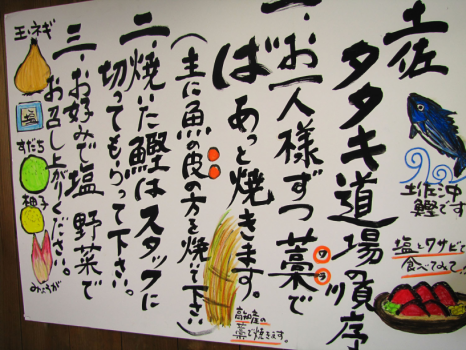 土佐
タタキ道場の順序
一、お一人様ずつ藁で
ワラ
ばあっと焼きます。
(主に魚の皮の方を焼いて下さい)
二、焼いた鰹はスタッフに
切ってもらって下さい。
三、お好みで塩 野菜で
お召し上がりください。
土佐沖
鰹です
塩とワサビで
食べてみて
高知産の
藁で焼きます。
玉ネギ
塩
すだち
柚子
みょうが